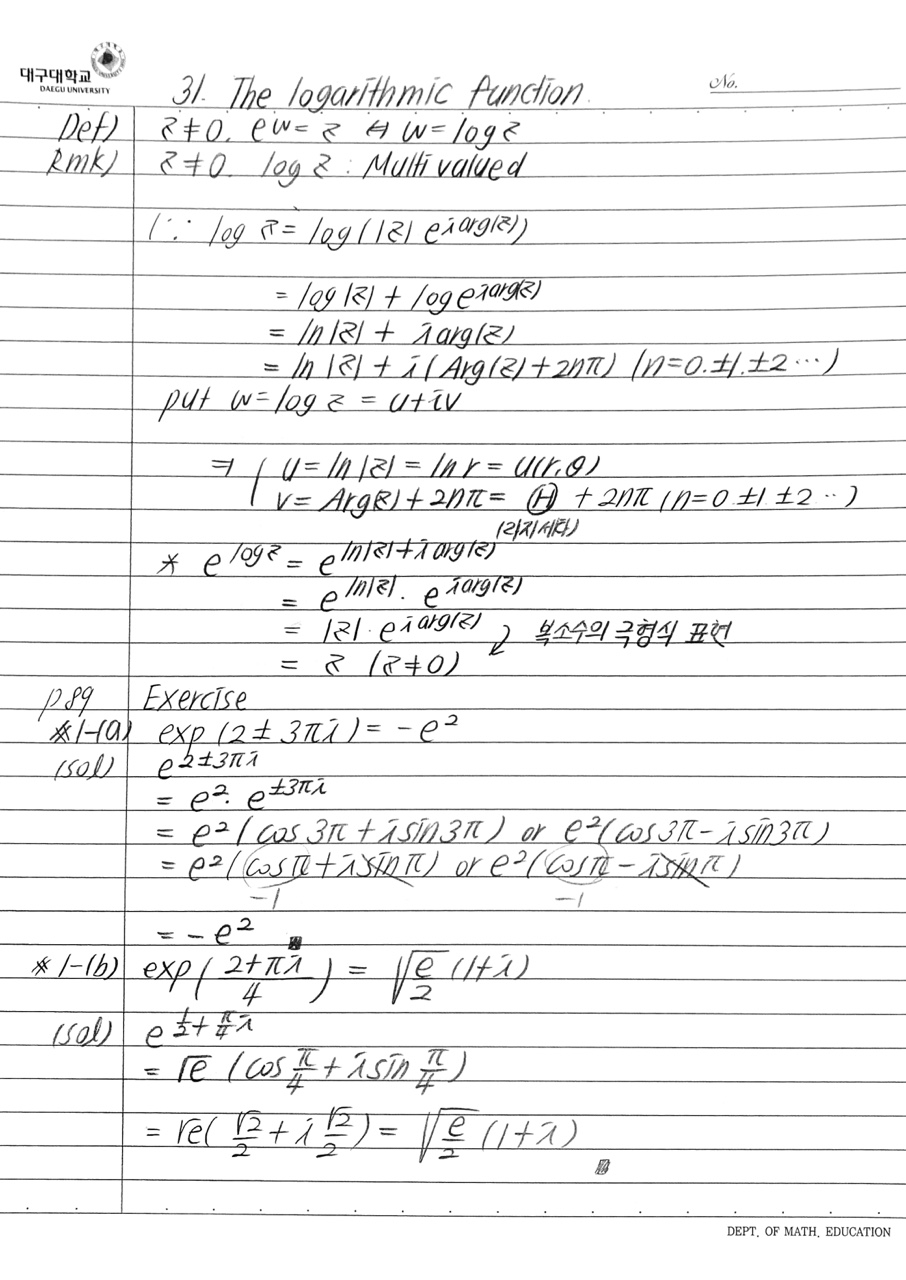 대구대학교
DAEGU UNIVERSITY
31. The logarithmic function.
No.
Def) z≠0. e^w = z ⇔ w = log z
Rmk) z≠0. log z : Multi valued
(∵ log z = log(|z| e^{i arg(z)})
= log|z| + log e^{i arg(z)}
= ln|z| + i arg(z)
= ln|z| + i(Arg(z)+2nπ) (n=0.±1.±2 ⋯)
put w = log z = u+iv
⇒ { u = ln|z| = ln r = u(r,θ)
v = Arg(z)+2nπ = Ⓗ + 2nπ (n=0 ±1 ±2 ‥)
(라지세타)
* e^{log z} = e^{ln|z|+i arg(z)}
= e^{ln|z|} · e^{i arg(z)}
= |z| · e^{i arg(z)} 복소수의 극형식 표현
= z (z≠0)
p89 Exercise
※1-(a) exp(2±3πi) = -e²
(sol) e^{2±3πi}
= e² · e^{±3πi}
= e²(cos3π+i sin3π) or e²(cos3π-i sin3π)
= e²(cosπ+i sinπ) or e²(cosπ-i sinπ)
-1 -1
= -e²
※1-(b) exp((2+πi)/4) = √(e/2) (1+i)
(sol) e^{1/2+π/4 i}
= √e (cos π/4 + i sin π/4)
= √e(√2/2 + i √2/2) = √(e/2) (1+i)
DEPT. OF MATH. EDUCATION